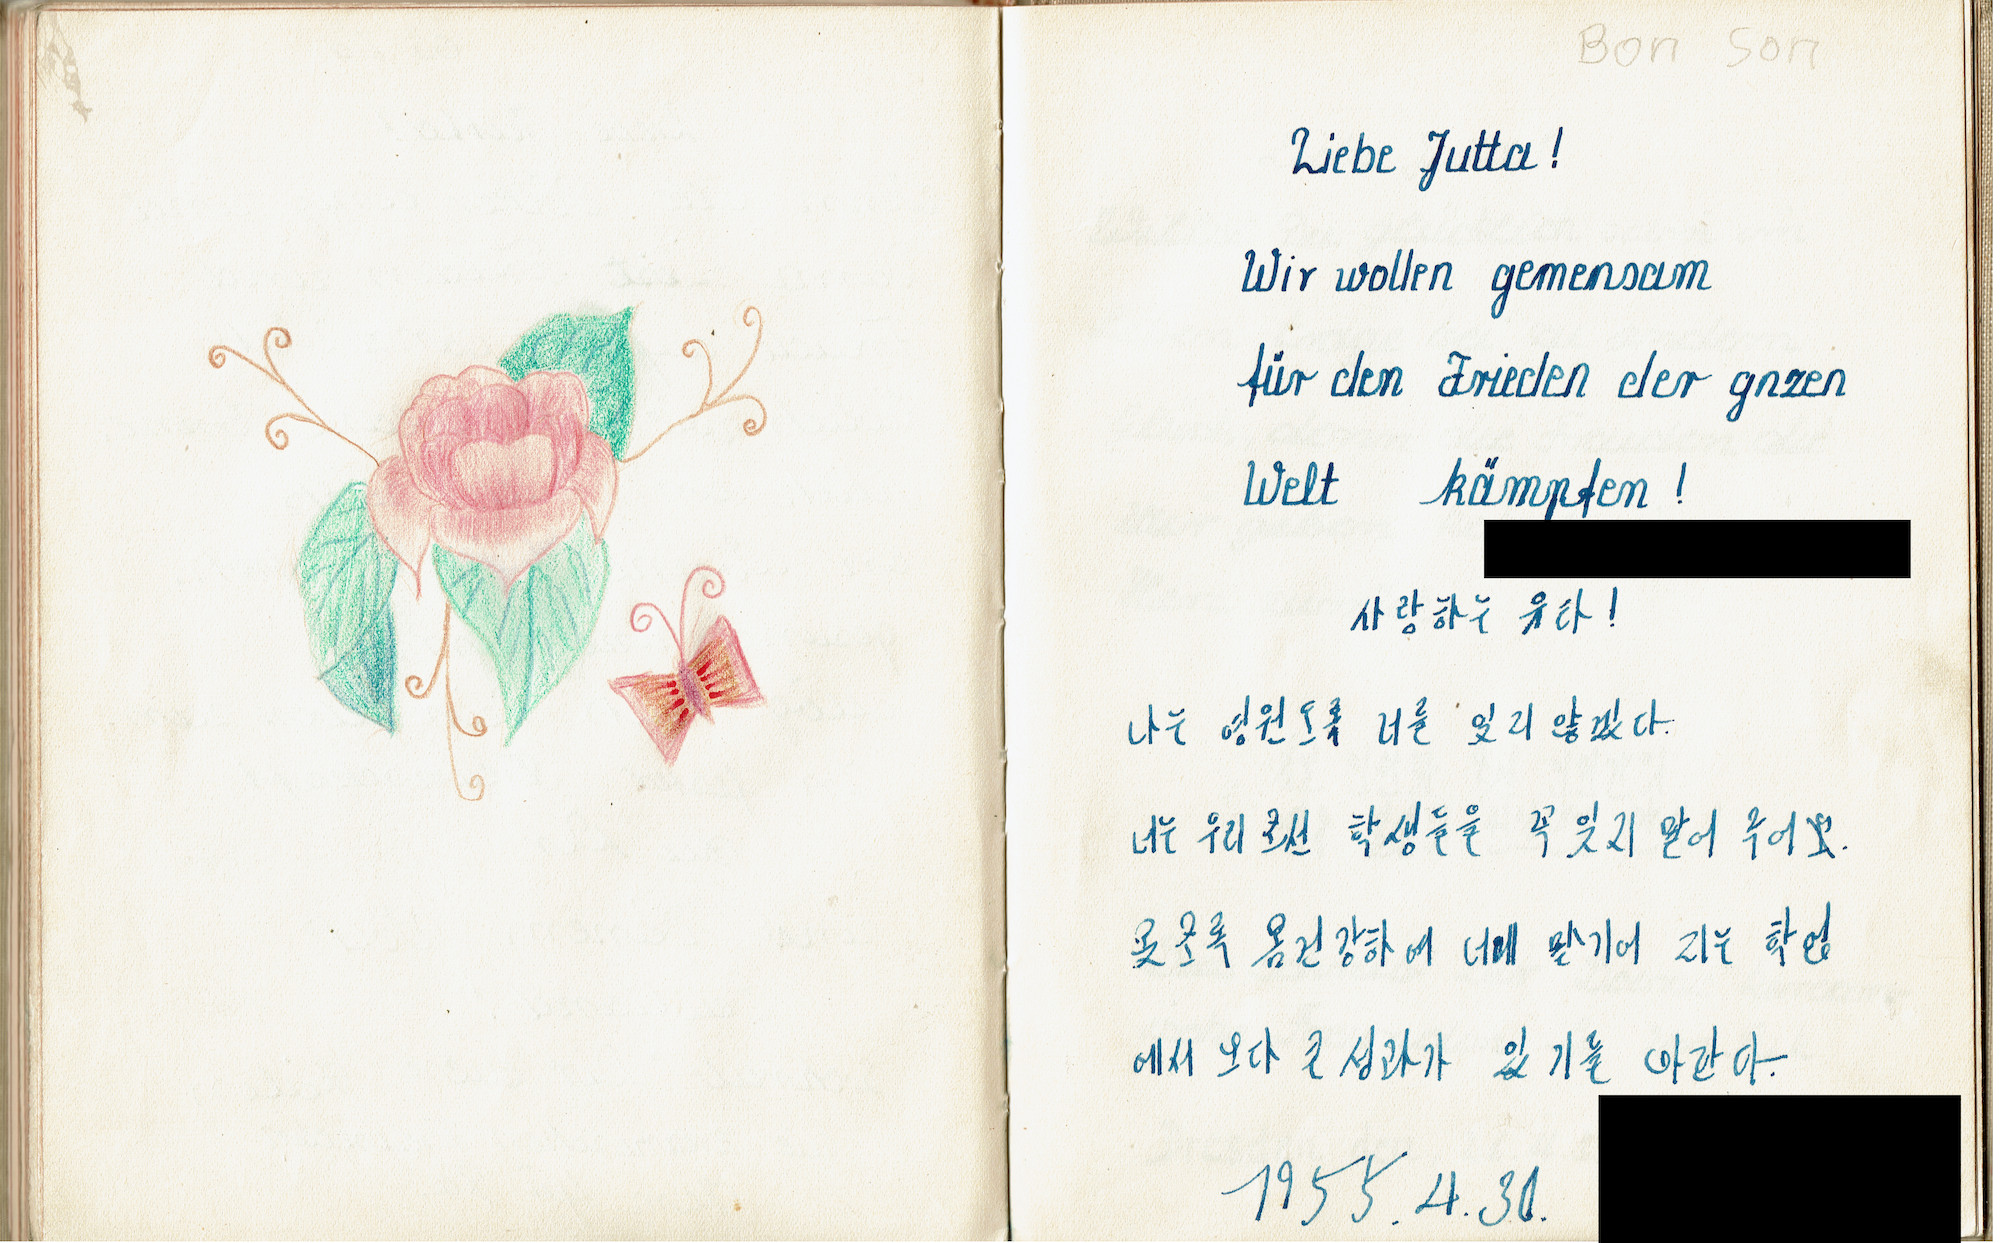 Bon Son
Liebe Jutta!
Wir wollen gemensam
für den Frieden der gnzen
Welt kämpfen!
사랑하는 유타!
나는 영원토록 너를 잊리 않겠다.
너는 우리 조선 학생들을 꼭 잊지 말어 주어요.
못조록 몸건강하여 너에 맡기어 지는 학업
에서 보다 큰 성과가 있기를 바란다.
1955.4.30.